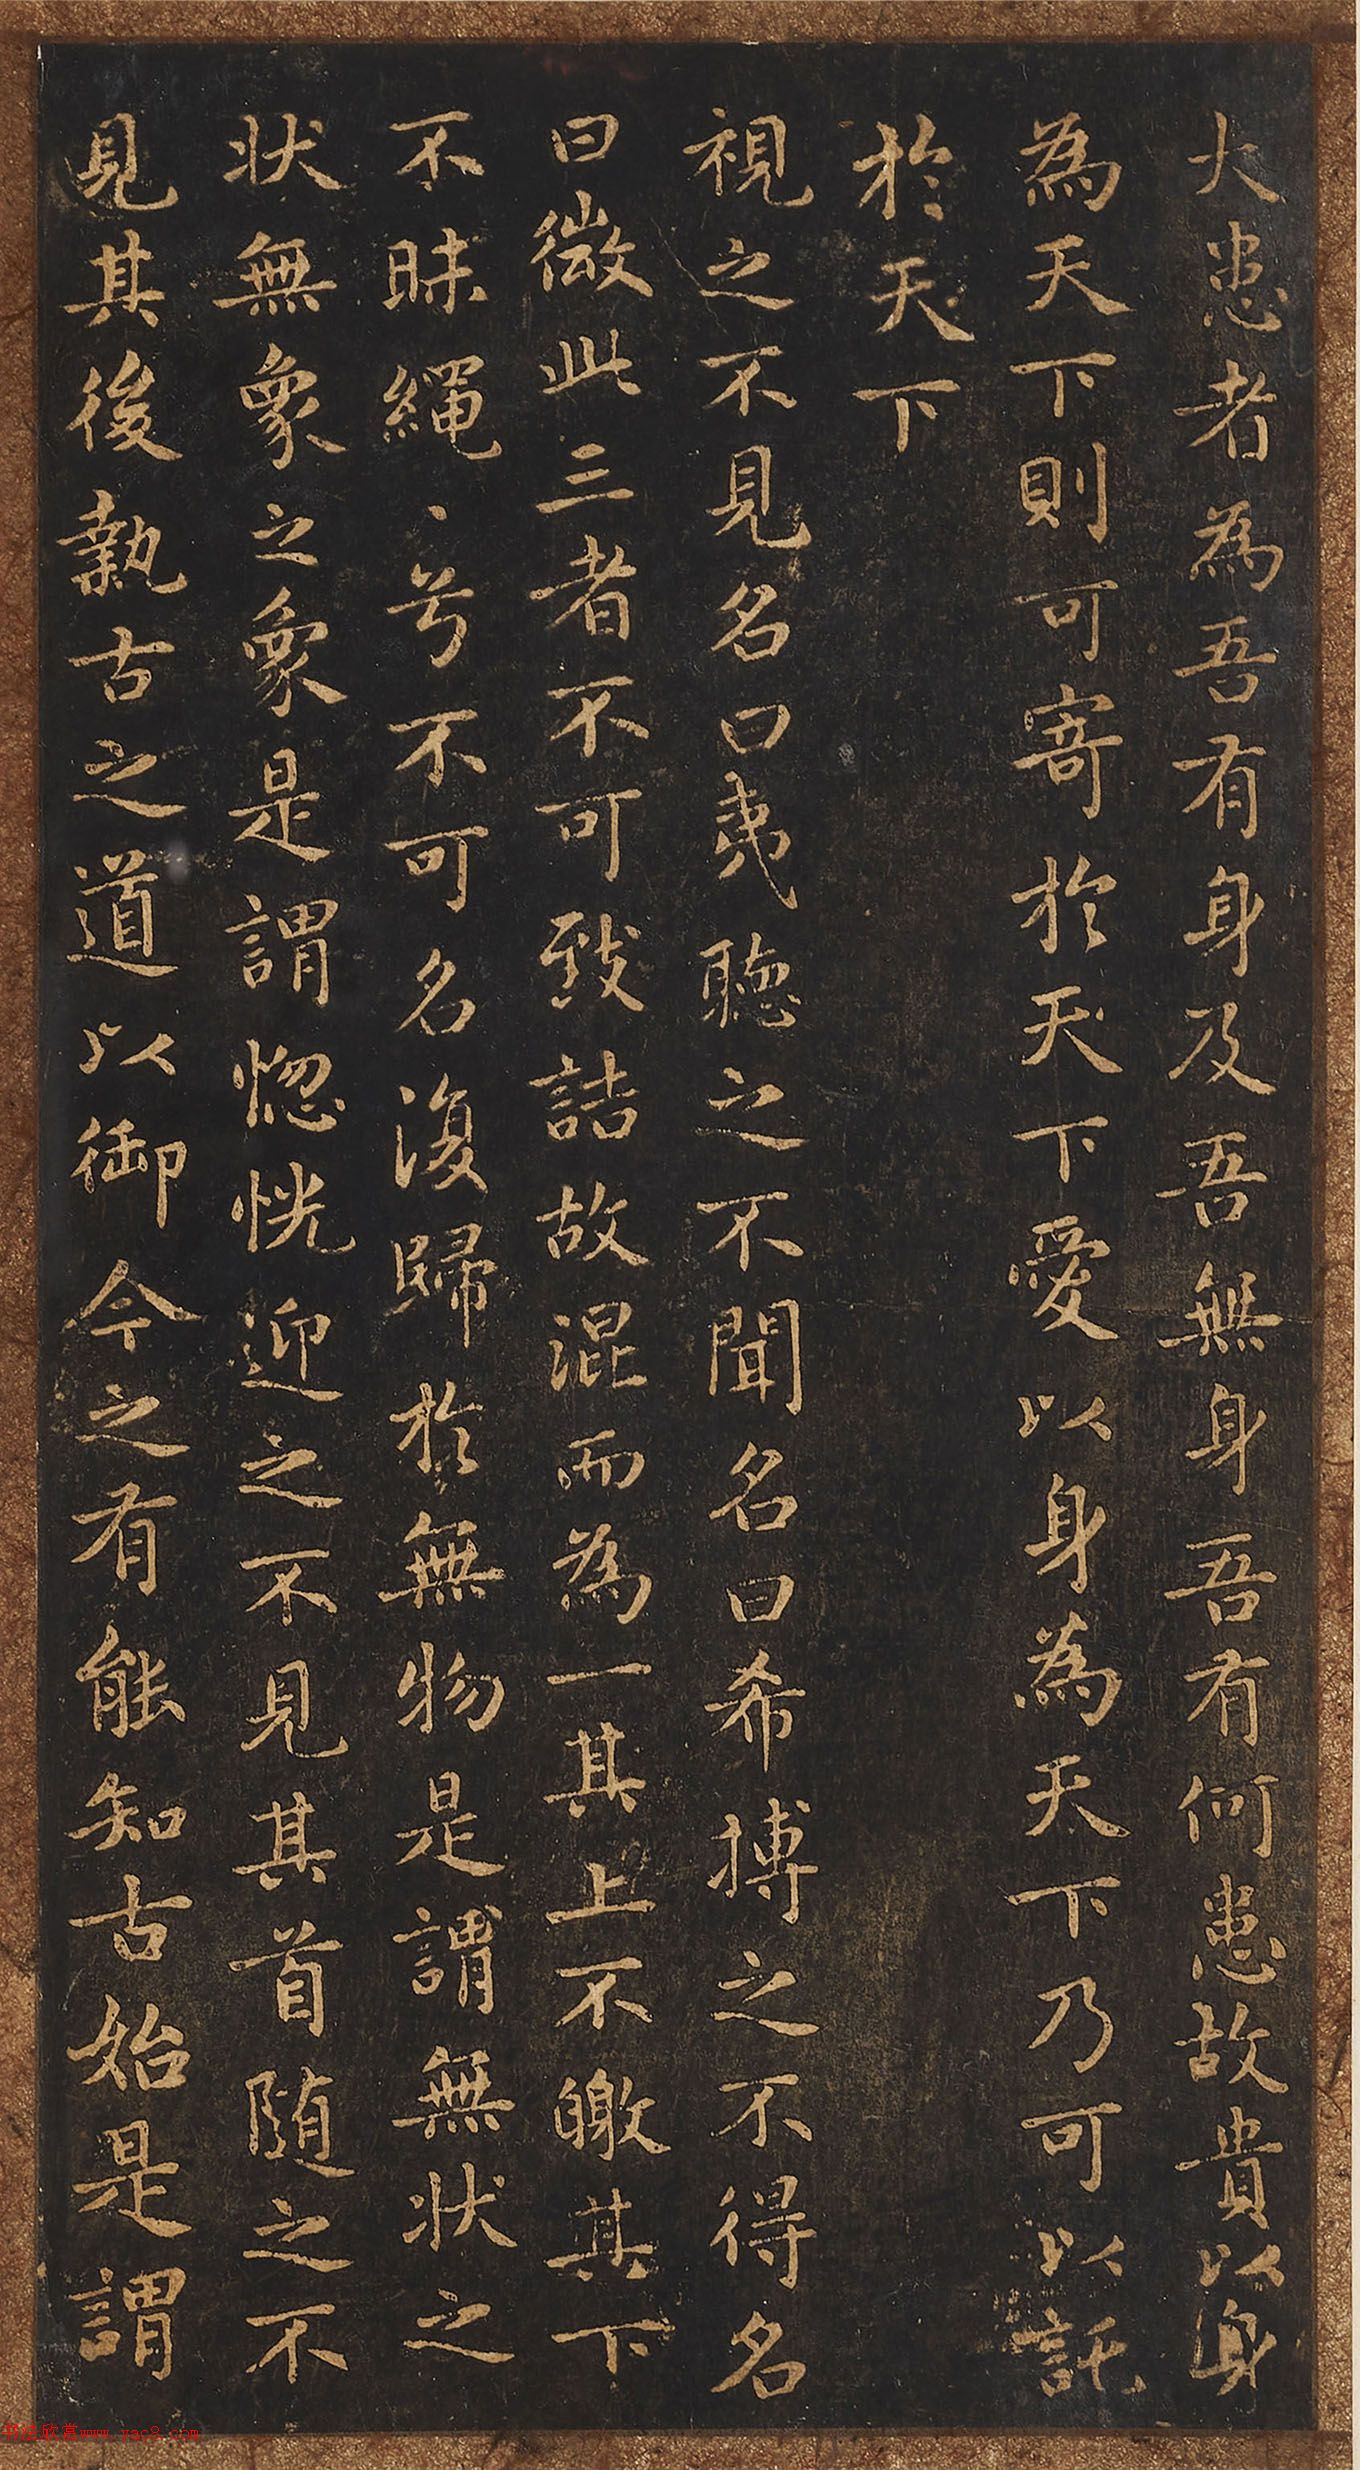 大患者為吾有身及吾無身吾有何患故貴以身
為天下則可寄於天下愛以身為天下乃可以託
於天下
視之不見名曰夷聽之不聞名曰希搏之不得名
曰微此三者不可致詰故混而為一其上不皦其下
不昧繩〻兮不可名復歸於無物是謂無狀之
狀無象之象是謂惚恍迎之不見其首隨之不
見其後執古之道以御今之有能知古始是謂
书法欣赏www.yac8.com